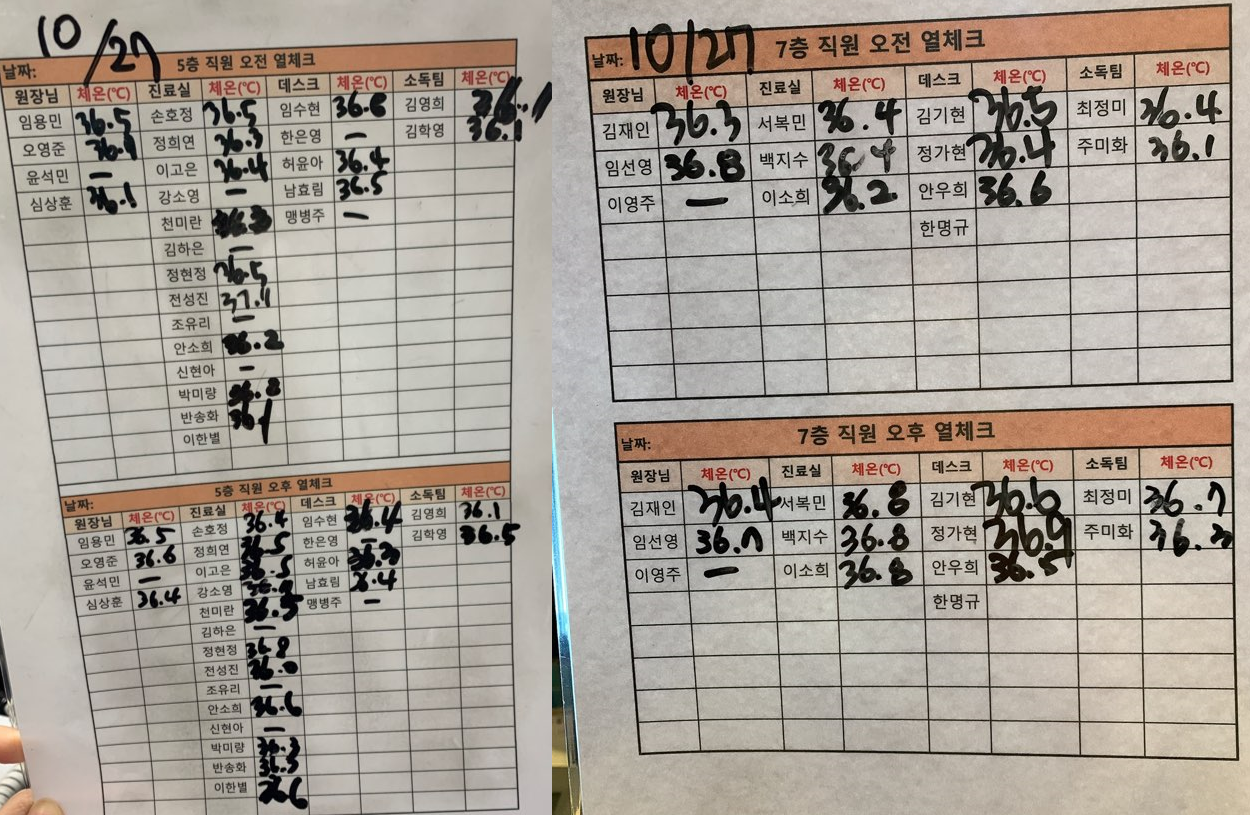 10/27
날짜: 5층 직원 오전 열체크
원장님 체온(℃) 진료실 체온(℃) 데스크 체온(℃) 소독팀 체온(℃)
임용민 36.5 손호정 36.5 임수현 36.6 김영희
오영준 정희연 36.3 한은영 — 김학영 36.1
윤석민 — 이고은 36.4 허윤아 36.4
심상훈 36.1 강소영 — 남효림 36.5
천미란 36.3 맹병주 —
김하은 —
정현정 36.5
전성진
조유리 —
안소희 36.2
신현아 —
박미량 36.8
반송화
이한별
날짜: 5층 직원 오후 열체크
원장님 체온(℃) 진료실 체온(℃) 데스크 체온(℃) 소독팀 체온(℃)
임용민 36.5 손호정 36.4 임수현 36.4 김영희 36.1
오영준 36.6 정희연 36.5 한은영 — 김학영 36.5
윤석민 — 이고은 36.5 허윤아 36.3
심상훈 36.4 강소영 남효림 36.4
천미란 36.5 맹병주 —
김하은 —
정현정 36.8
전성진 36.0
조유리 —
안소희 36.6
신현아 —
박미량 36.3
반송화 36.3
이한별 36.6
날짜: 10/27 7층 직원 오전 열체크
원장님 체온(℃) 진료실 체온(℃) 데스크 체온(℃) 소독팀 체온(℃)
김재인 36.3 서복민 36.4 김기현 36.5 최정미 36.4
임선영 36.8 백지수 36.4 정가현 36.4 주미화 36.1
이영주 — 이소희 36.2 안우희 36.6
한명규
날짜: 7층 직원 오후 열체크
원장님 체온(℃) 진료실 체온(℃) 데스크 체온(℃) 소독팀 체온(℃)
김재인 36.4 서복민 36.8 김기현 36.6 최정미 36.7
임선영 36.7 백지수 36.8 정가현 36.9 주미화 36.3
이영주 — 이소희 36.8 안우희 36.5
한명규